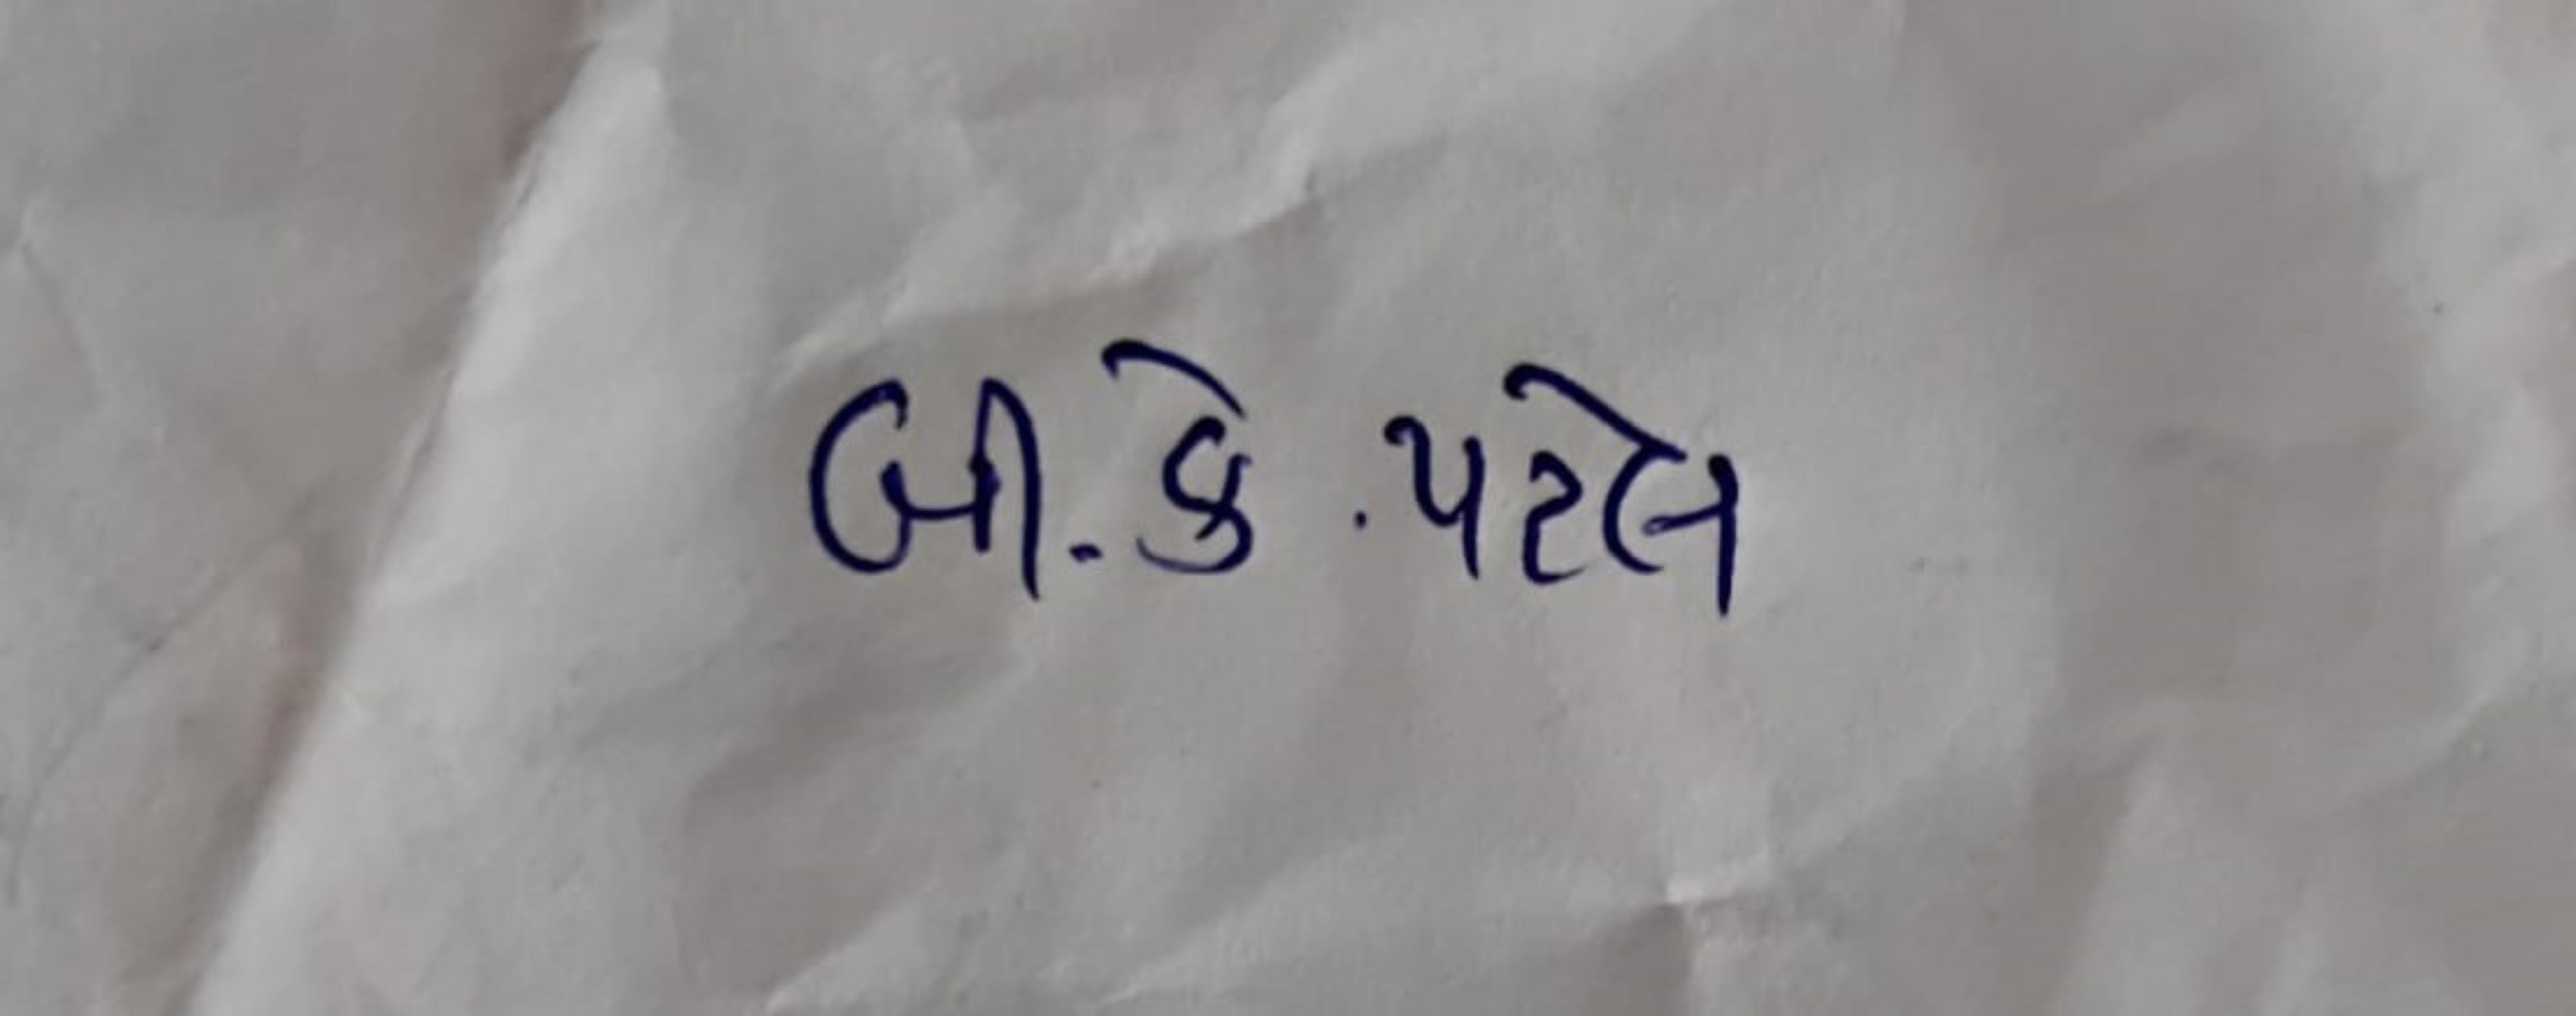 બી.કે .પટેલ